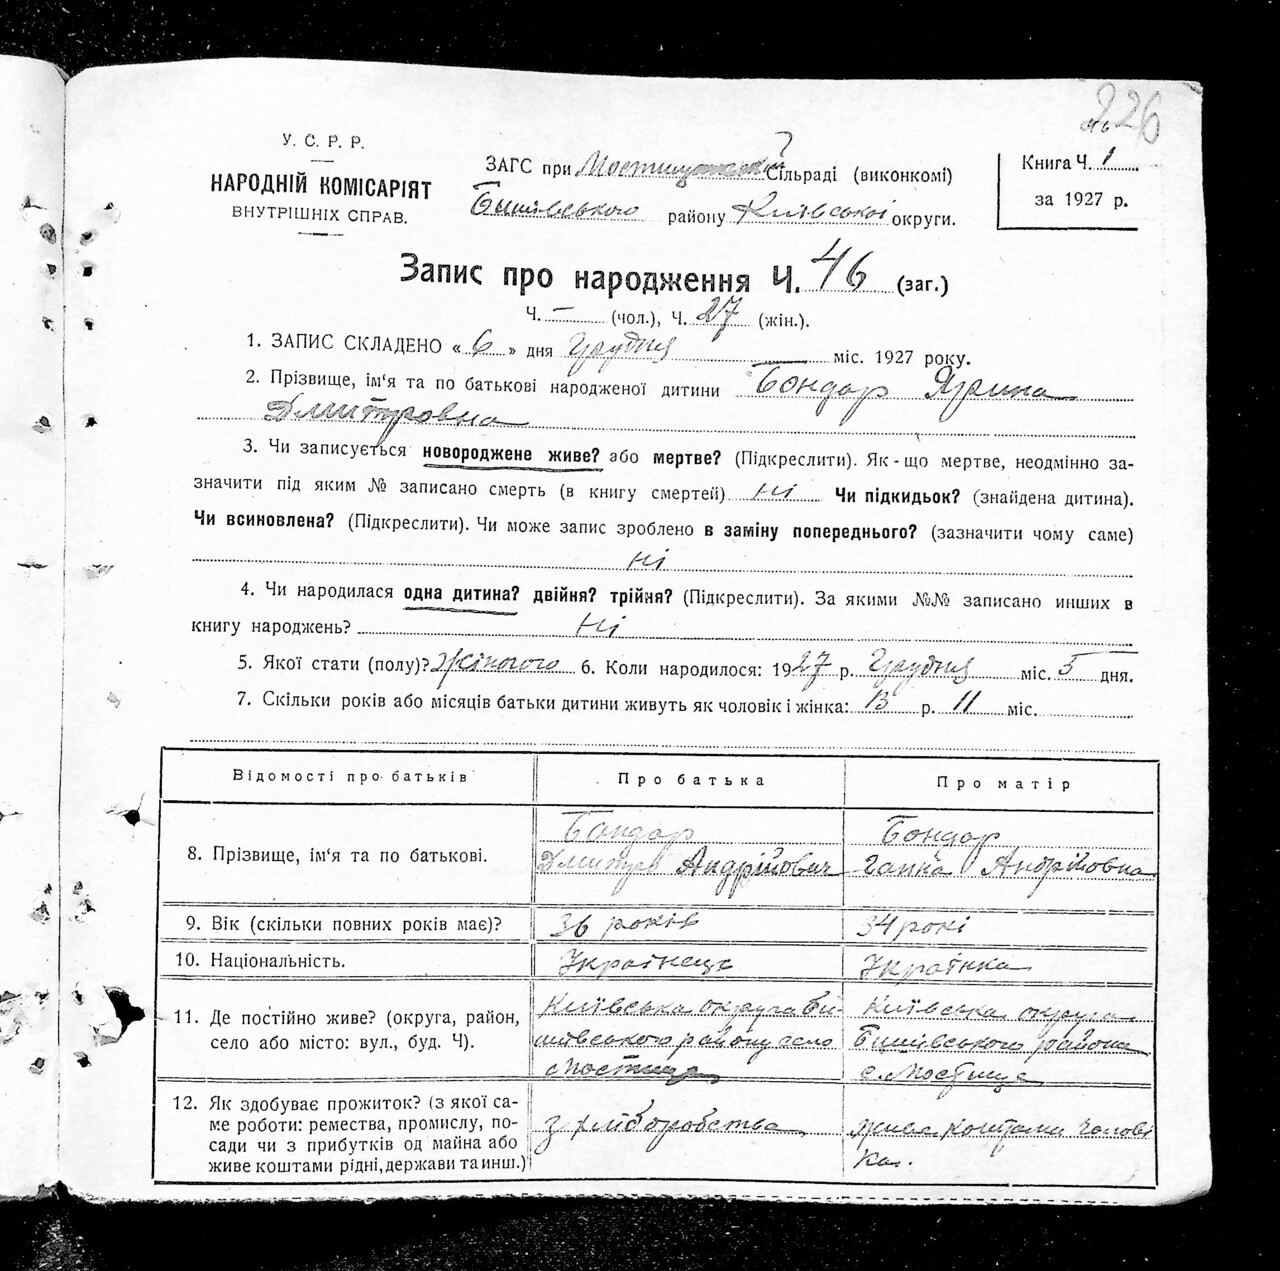 226
У. С. Р. Р.
НАРОДНІЙ КОМІСАРІЯТ
ВНУТРІШНІХ СПРАВ.
ЗАГС при Сільраді (виконкомі)
Бишівського району Київської округи.
Книга Ч. 1
за 1927 р.
Запис про народження Ч. 46 (заг.)
Ч. – (чол.), Ч. 27 (жін.).
1. ЗАПИС СКЛАДЕНО « 6 » дня Грудня міс. 1927 року.
2. Прізвище, ім'я та по батькові народженої дитини Бондар Ярина
Дмитровна
3. Чи записується новороджене живе? або мертве? (Підкреслити). Як-що мертве, неодмінно за-
значити під яким № записано смерть (в книгу смертей) ні Чи підкидьок? (знайдена дитина).
Чи всиновлена? (Підкреслити). Чи може запис зроблено в заміну попереднього? (зазначити чому саме)
ні
4. Чи народилася одна дитина? двійня? трійня? (Підкреслити). За якими №№ записано инших в
книгу народжень? ні
5. Якої стати (полу)? жіночого 6. Коли народилося: 1927 р. Грудня міс. 5 дня.
7. Скільки років або місяців батьки дитини живуть як чоловік і жінка: 13 р. 11 міс.
Відомості про батьків Про батька Про матір
8. Прізвище, ім'я та по батькові.
Бондар
Дмитро Андрійович
Бондар
Ганна Андрійовна
9. Вік (скільки повних років має)? 36 років 34 рокі
10. Національність. Українець Українка
11. Де постійно живе? (округа, район,
село або місто: вул., буд. Ч).
Київська округа Би-
шівського району село
Мостище
Київська округа
Бишівського района
с. Мостище
12. Як здобуває прожиток? (з якої са-
ме роботи: ремества, промислу, по-
сади чи з прибутків од майна або
живе коштами рідні, держави та инш.)
з хліборобства
живе коштами чолові
ка.